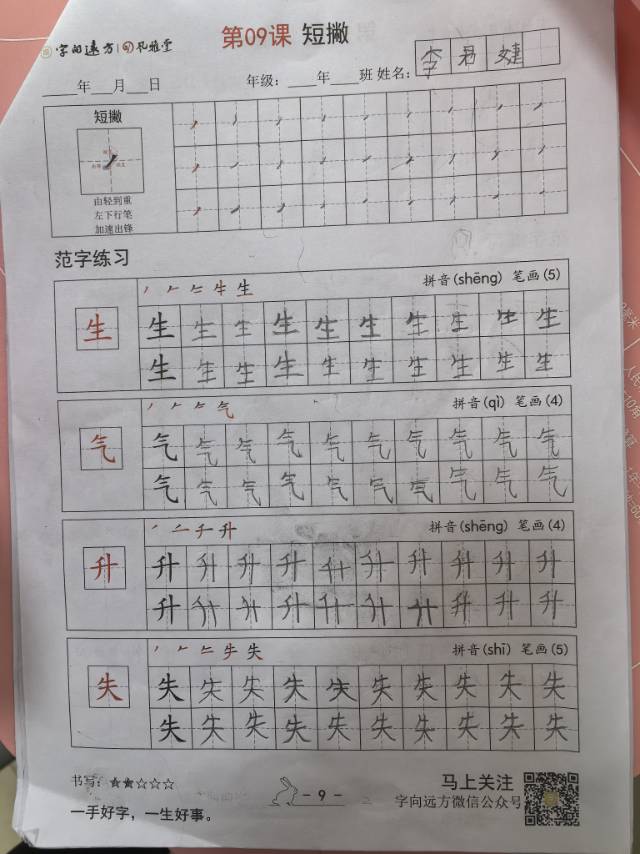 字向远方 风雅堂
第09课 短撇
____年___月___日 年级：____年____班 姓名：李君婕
短撇
由轻到重
左下行笔
加速出锋
范字练习
拼音(shēng) 笔画(5)
生 生 生 生 生 生 生 生 生 生 生
生 生 生 生 生 生 生 生 生 生
拼音(qì) 笔画(4)
气 气 气 气 气 气 气 气 气 气 气
气 气 气 气 气 气 气 气 气 气
升 拼音(shēng) 笔画(4)
升 升 升 升 升 升 升 升 升 升 升
升 升 升 升 升 升 升 升 升 升
失 拼音(shī) 笔画(5)
失 失 失 失 失 失 失 失 失 失 失
失 失 失 失 失 失 失 失 失 失
书写：★★☆☆☆
一手好字，一生好事。
- 9 -
马上关注
字向远方微信公众号